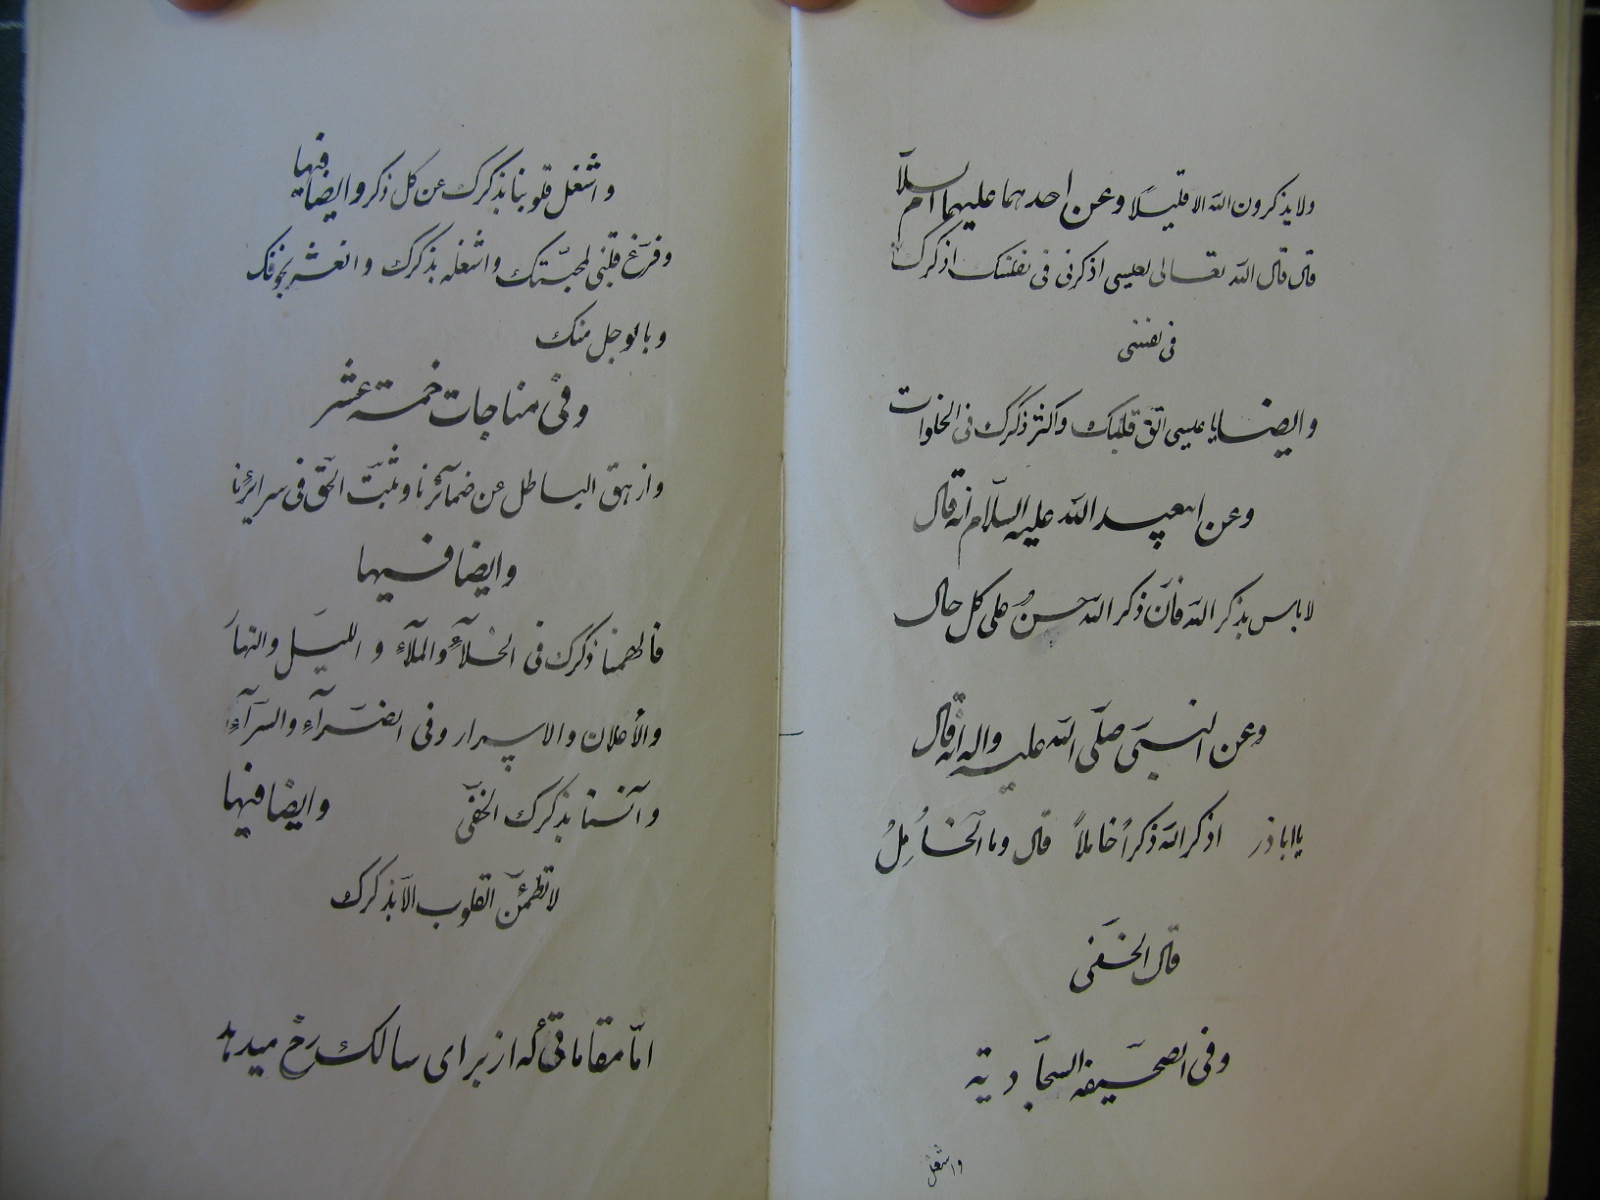 ولا يذكرون الله الا قليلًا وعن احدهما عليهما السلام
قال قال الله تعالى لعيسى اذكرنى فى نفسك اذكرك
فى نفسى
وايضا يا عيسى الق قلبك واكثر ذكرك فى الخلوات
وعن ابيعبد الله عليه السلام انه قال
لا باس بذكر الله فان ذكر الله حسن على كل حال
وعن النبى صلّى الله عليه واله انّه قال
يا اباذر اذكر الله ذكراً خاملاً قال وما الخامل
قال الخفى
وفى الصحيفة السجادية
واشغل
واشغل قلوبنا بذكرك عن كل ذكر وايضا فيها
وفرّغ قلبى لمحبّتك واشغله بذكرك وانعشه بخوفك
وبالوجل منك
وفى مناجات خمسة عشر
وازهق الباطل عن ضمآئرنا وثبّت الحق فى سرايرنا
وايضا فيها
فالهمنا ذكرك فى الخلآء والملآء و الليل والنهار
والأعلان والاسرار وفى الضرّآء والسرّآء
وآنسنا بذكرك الخفىّ وايضا فيها
لا تطمئن القلوب الّا بذكرك
امّا مقاماتى كه از براى سالك رخ ميدهد